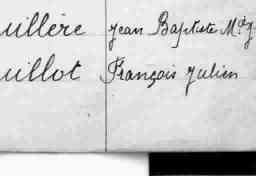 uillère Jean Baptiste
uillot François Julien